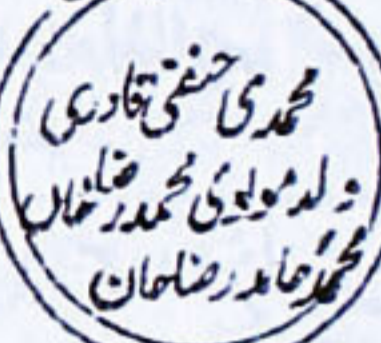 محمدی حنفی قادری
ولد مولوی محمد رضا خاں
محمد حامد رضا خان